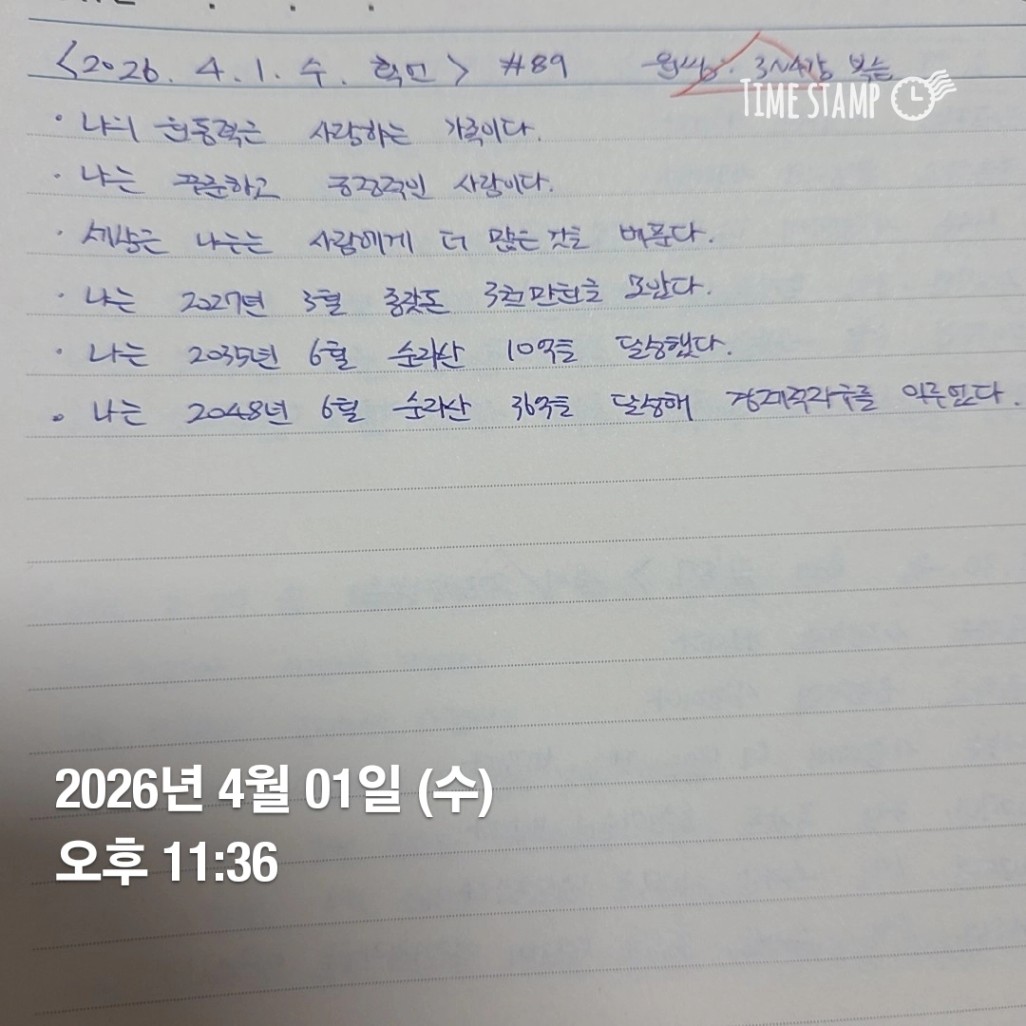 <2026. 4. 1. 수. 확언> #89 3~4강 복습
TIME STAMP
· 나의 원동력은 사랑하는 가족이다.
· 나는 꾸준하고 긍정적인 사람이다.
· 세상은 나누는 사람에게 더 많은 것을 베푼다.
· 나는 2027년 3월 종잣돈 3천만원을 모았다.
· 나는 2035년 6월 순자산 10억을 달성했다.
· 나는 2048년 6월 순자산 36억을 달성해 경제적자유를 이루었다.
2026년 4월 01일 (수)
오후 11:36